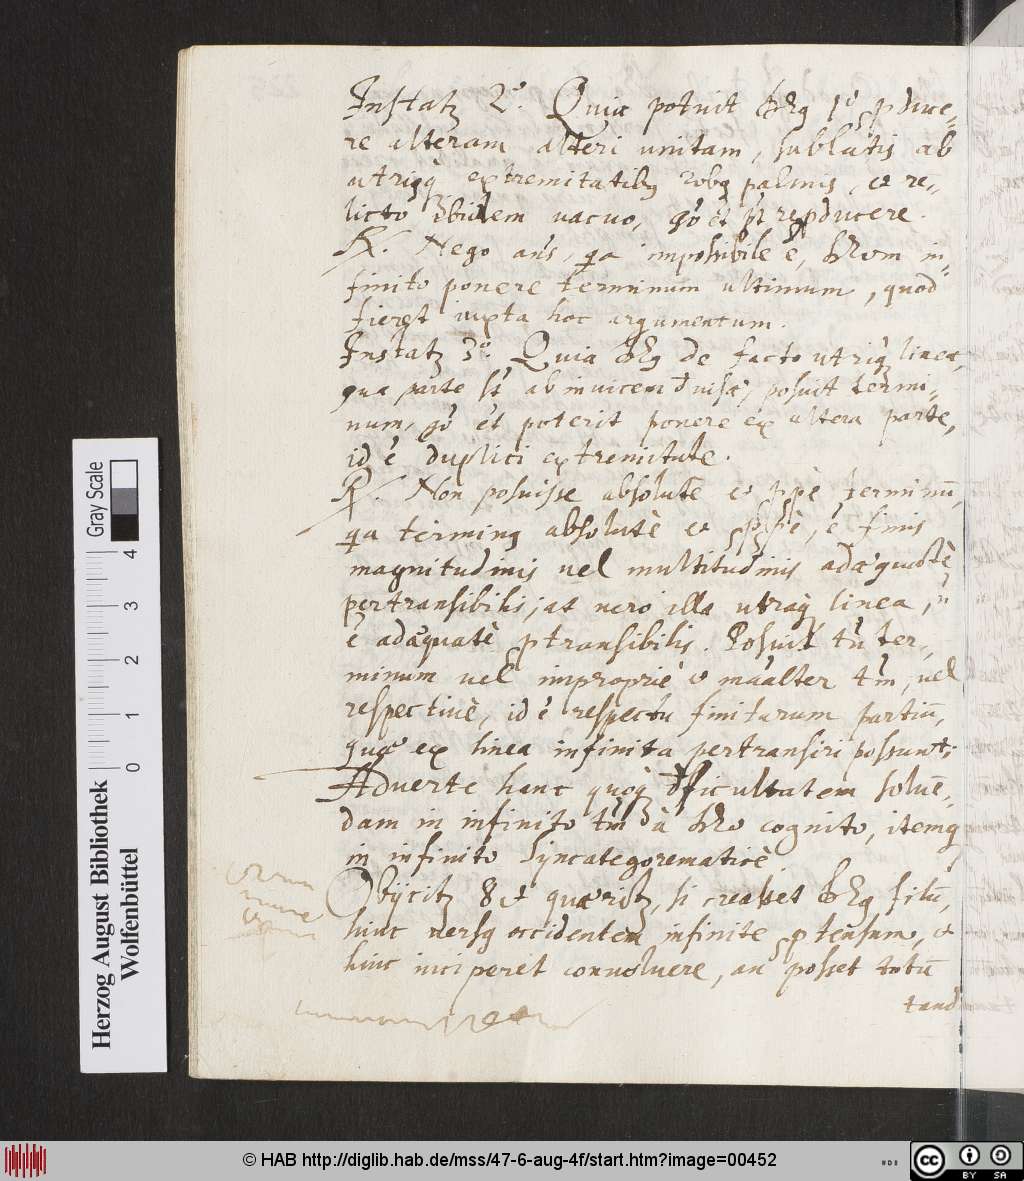 Instatꝫ 2º. Quia potuit Dꝫ 1º ꝓduce-
re alteram alteri unitam, sublatis ab
utrisqꝫ extremitatibꝫ palmis, et re-
licto ibidem vacuo, gº et pt reproducere.
R. Nego ans, qa impossibile ē, Deum in-
finito ponere terminum ultimum, quod
fieret iuxta hoc argumentum.
Instatꝫ 3º. Quia de facto utriqꝫ lineæ,
qua parte st ab invicem divisæ, posuit termi-
num, gº et poterit ponere ex altera parte,
id ē duplici extremitate.
R. Non posuisse absolutè et ppè terminū,
qa terminꝫ absolutè et pp̃è, ē finis
magnitudinis vel multitudinis adæquatè
pertransibilis; at vero illa utraqꝫ linea, ñ
ē adæquatè ꝑtransibilis. Posuit tñ ter-
minum vel impropriè et maālter tm̃, vel
respectivè, id ē respectu finitarum partiū,
quæ ex linea infinita pertransiri possunt;
Adverte hanc quoqꝫ difficultatem solvē-
dam in infinito tm̃ à Deo cognito, itemqꝫ
in infinito syncategorematicè
Obijcitꝫ 8 et quæritꝫ, si crearet filū,
hinc versꝫ occidentem infinite ꝓtensum, et
hinc inciperet convolvere, an posset totū
tand
Gray Scale
0 1 2 3 4
Herzog August Bibliothek
Wolfenbüttel
© HAB http://diglib.hab.de/mss/47-6-aug-4f/start.htm?image=00452
cc BY SA